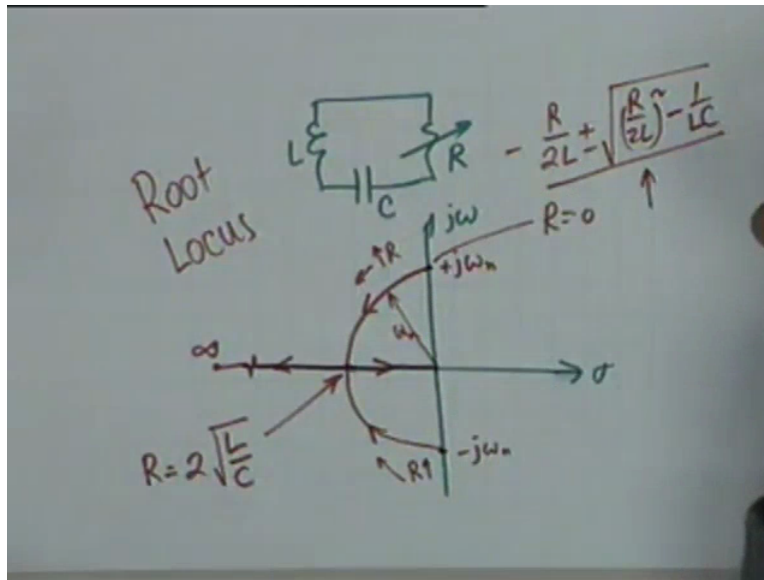 Root
Locus
L
C
R
- R/2L ± √((R/2L)² - 1/LC)
jω
R=0
↑R
+jωn
ωn
∞
σ
R = 2√(L/C)
-jωn
R↑